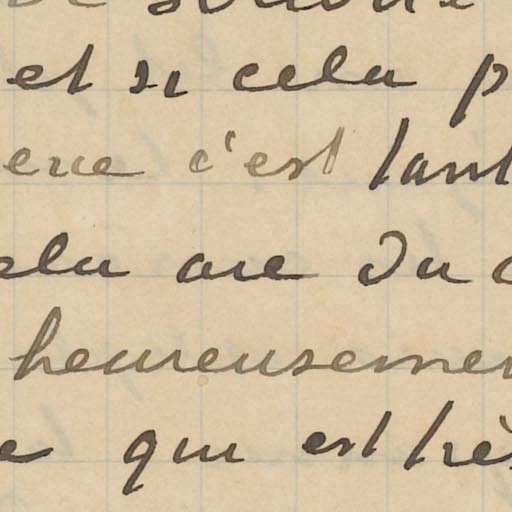 et si cela p
ere c'est tant
ela me du
heureusemen
e qui est trè